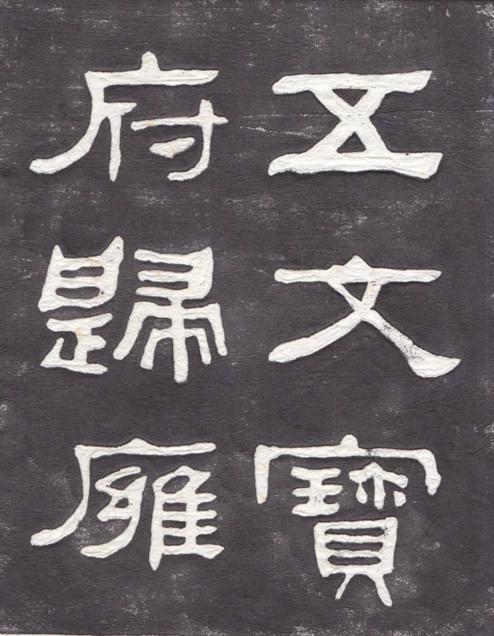 五文寶
府歸雁